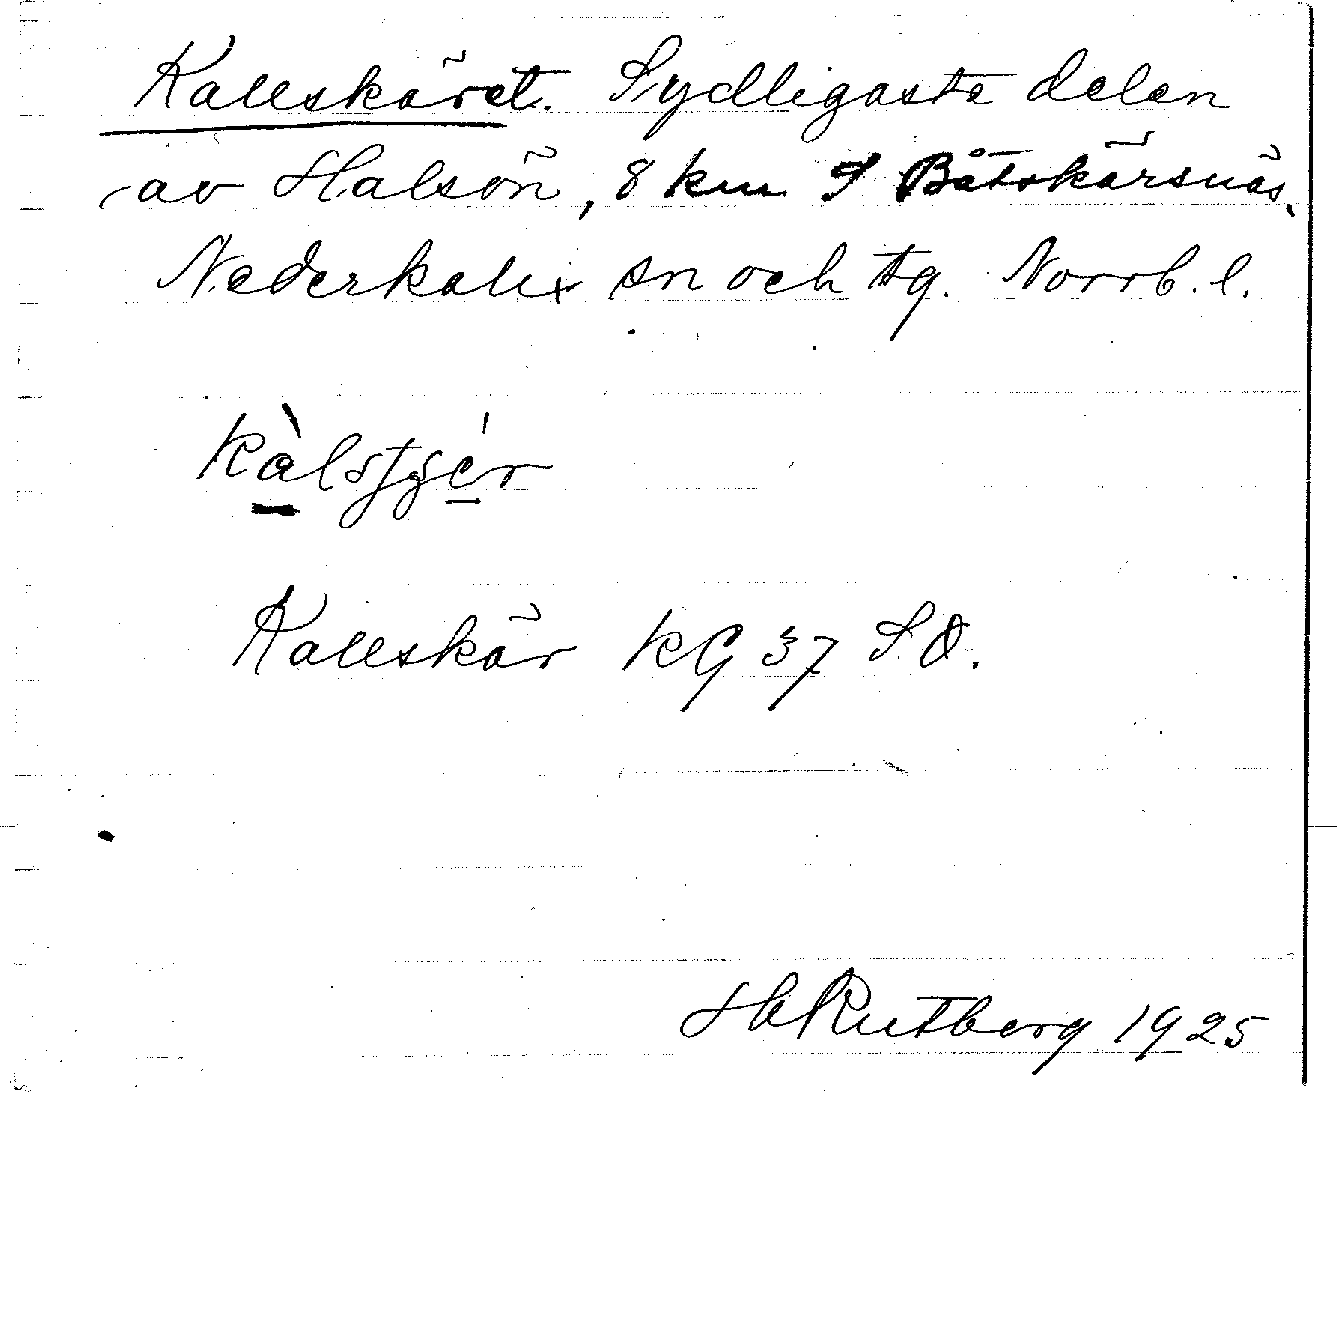 Kallskäret. Sydligaste delen
av Halsön, 8 km S Båtskärsnäs,
Nederkalix sn och tg. Norrb. l.
Kallskär KG 37 SO.
H Rutberg 1925